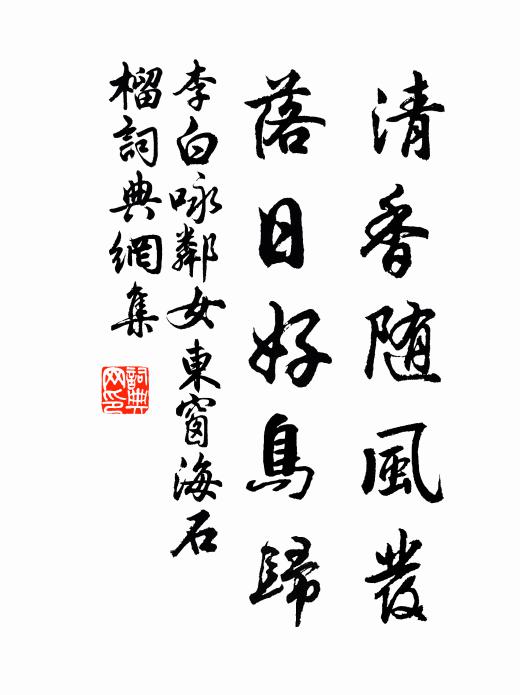 清香随風發
落日好鳥歸
李白咏鄰女東窗海石
榴詞典網集
詞典网印